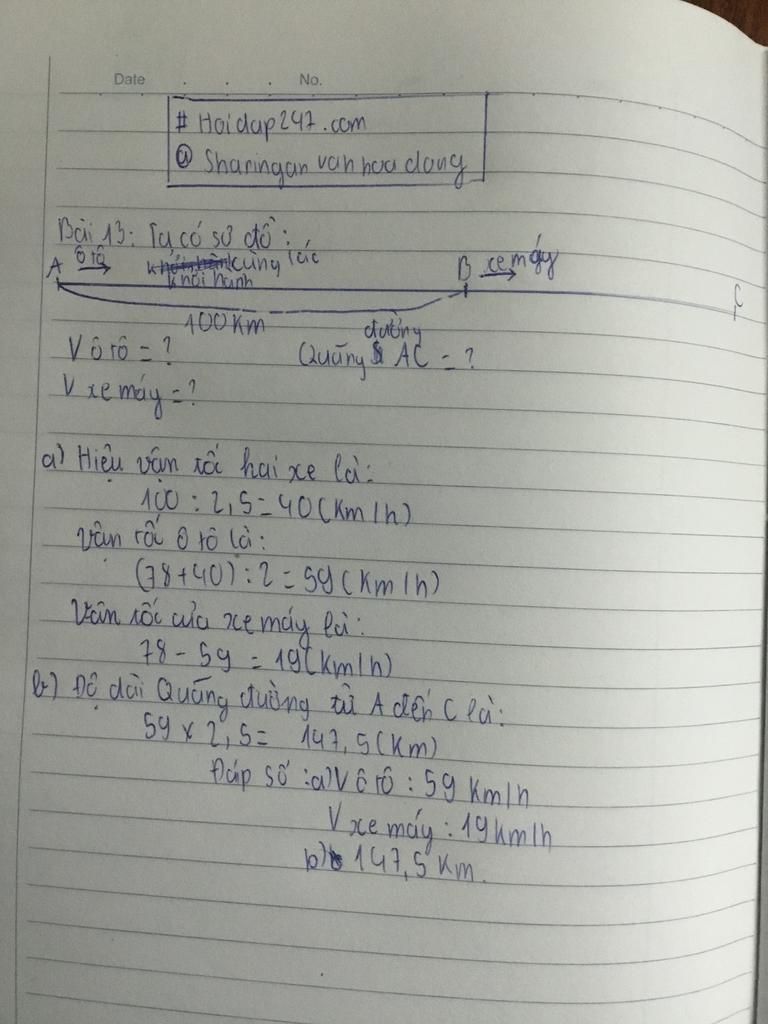 Date . . . No.
# Hoidap247.com
@ Sharingan van hoa dang
Bài 13: Ta có sơ đồ:
A ô tô cùng lúc B xe máy
khởi hành
C
100 Km
V ô tô = ? Quãng đường AC = ?
V xe máy = ?
a) Hiệu vận tốc hai xe là:
100 : 2,5 = 40 (Km/h)
Vận tốc ô tô là:
(78 + 40) : 2 = 59 (Km/h)
Vận tốc của xe máy là:
78 - 59 = 19 (km/h)
b) Độ dài Quãng đường từ A đến C là:
59 x 2,5 = 147,5 (Km)
Đáp số : a) V ô tô : 59 Km/h
V xe máy : 19 km/h
b) 147,5 Km.